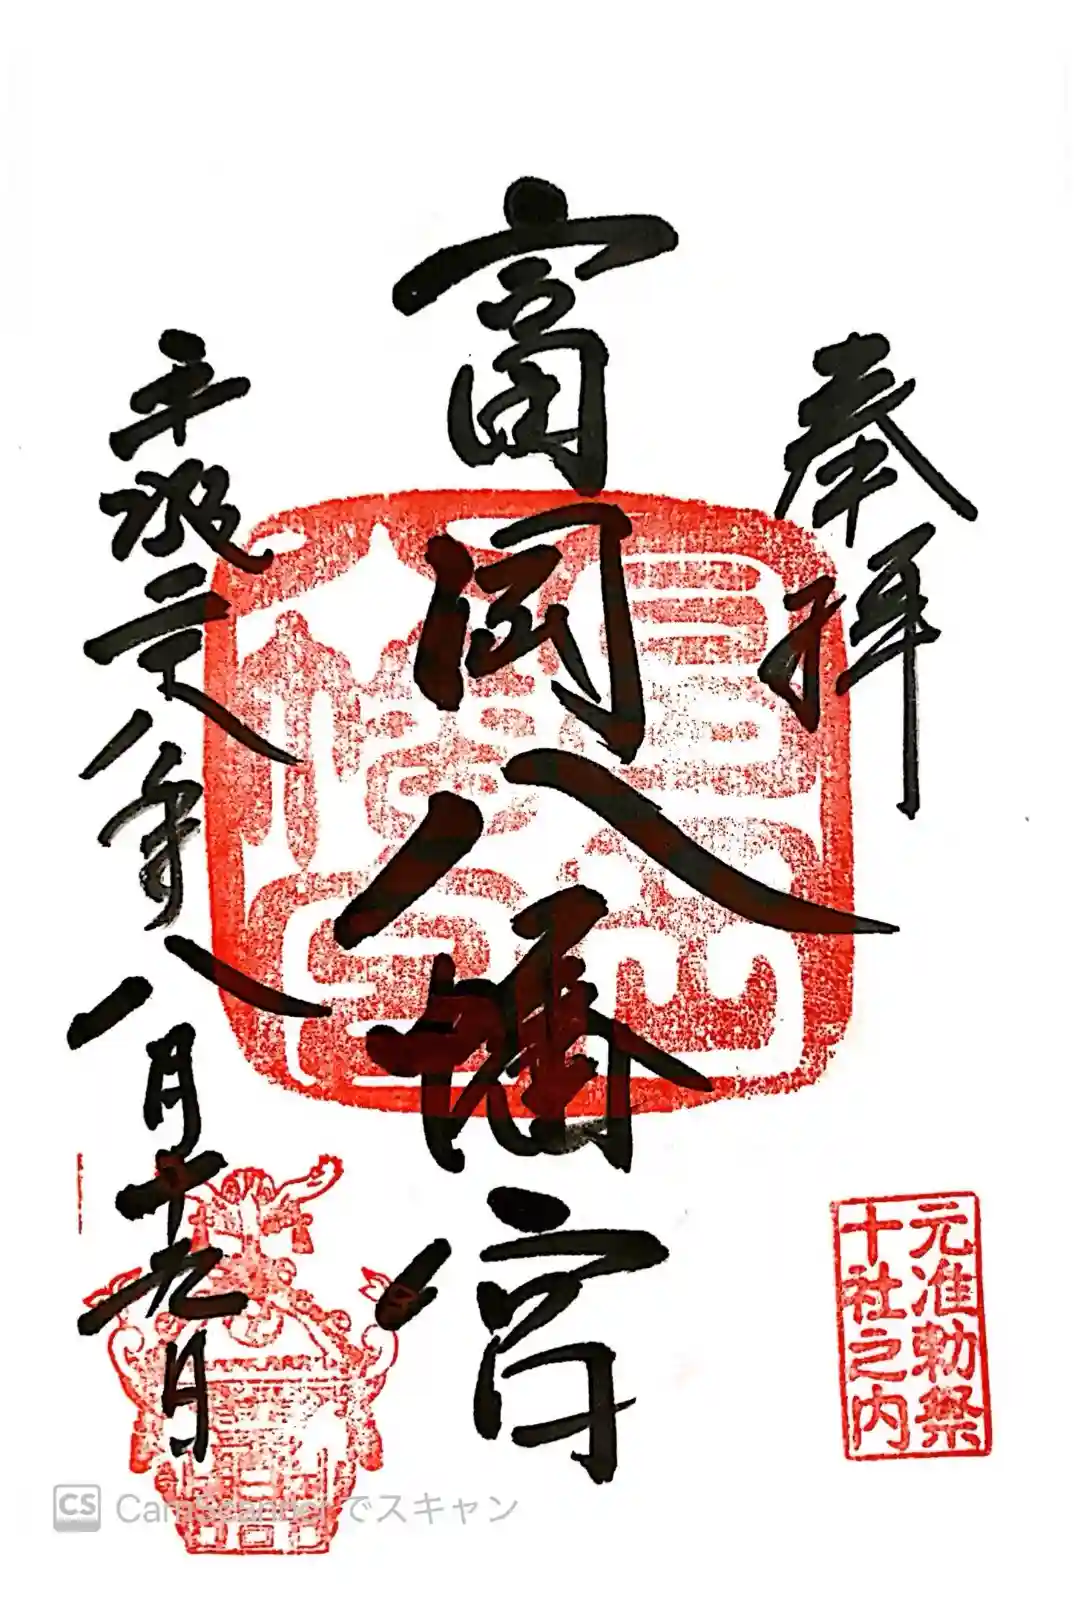 奉拝
富岡八幡宮
平成二十八年八月十九日
元准勅祭
十社之内
CS CamScannerでスキャン